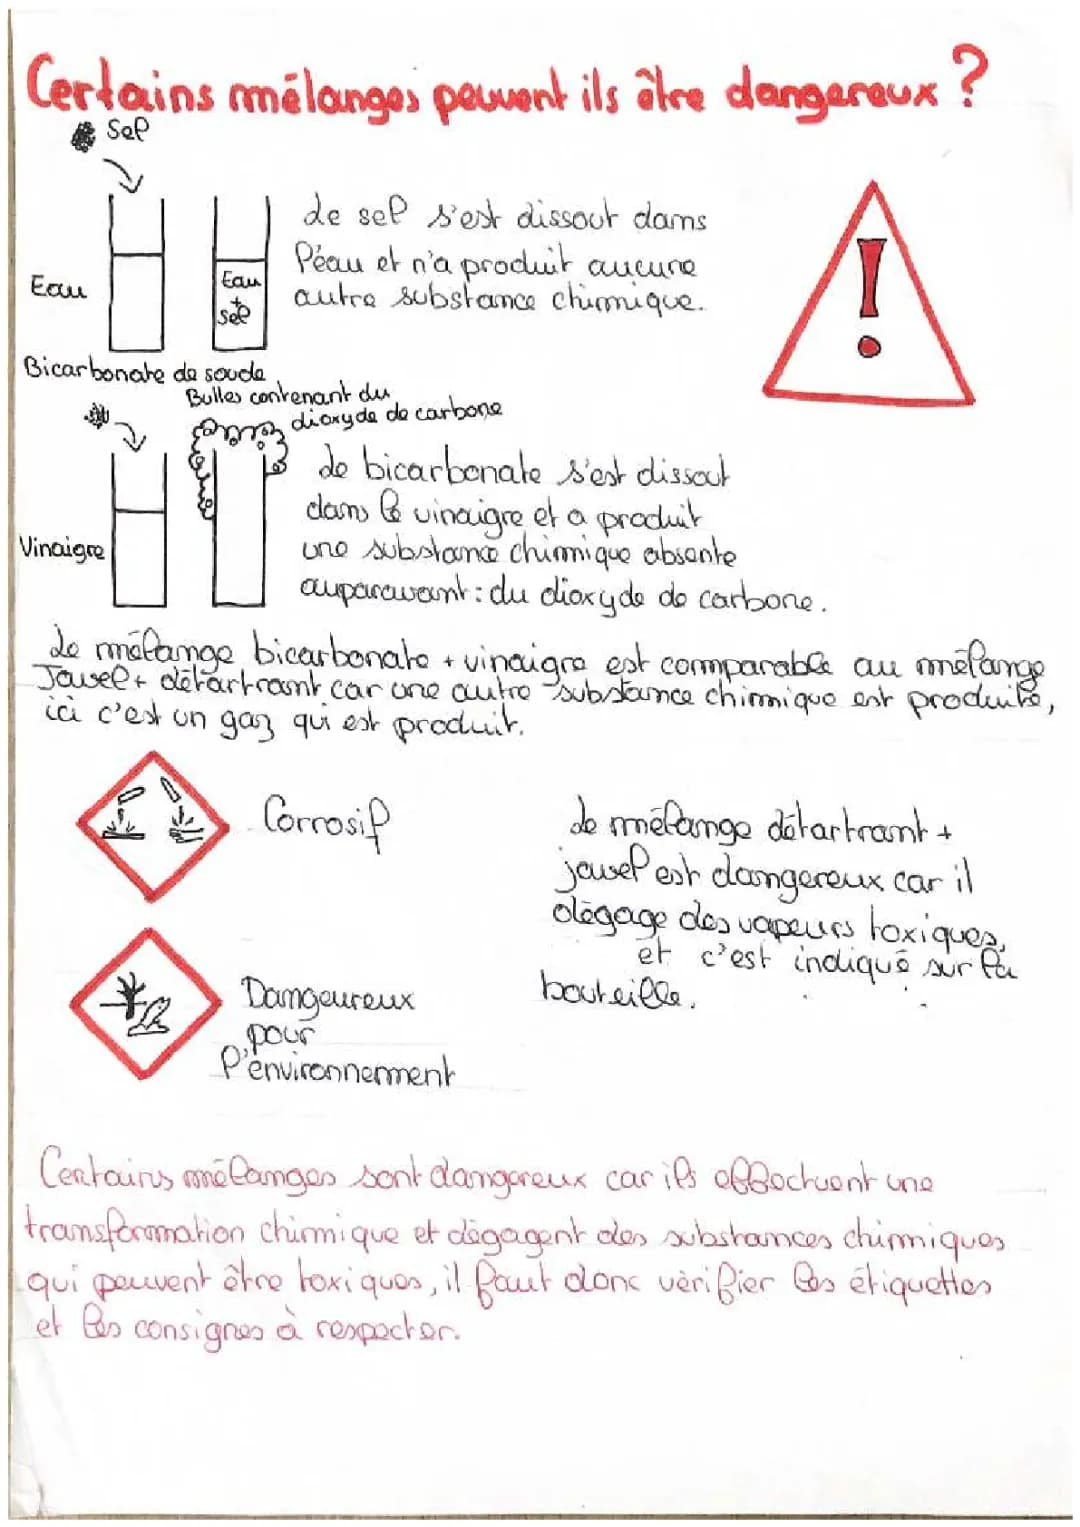 Certains mélanges peuvent ils être dangereux ?
Sel
Eau
Eau
+
sel
Le sel s'est dissout dans
l'éau et n'a produit aucune
autre substance chimique.
!
Bicarbonate de soude
Bulles contenant du
dioxyde de carbone
Vinaigre
Le bicarbonate s'est dissout
dans le vinaigre et a produit
une substance chimique absente
auparavant : du dioxyde de carbone.
Le mélange bicarbonate + vinaigre est comparable au mélange
Javel + détartrant car une autre substance chimique est produite,
ici c'est un gaz qui est produit.
Corrosif
Le mélange détartrant +
javel est dangereux car il
dégage des vapeurs toxiques,
et c'est indiqué sur la
bouteille.
Dangeureux
pour
l'environnement
Certains mélanges sont dangereux car ils effectuent une
transformation chimique et dégagent des substances chimiques
qui peuvent être toxiques, il faut donc vérifier les étiquettes
et les consignes à respecter.